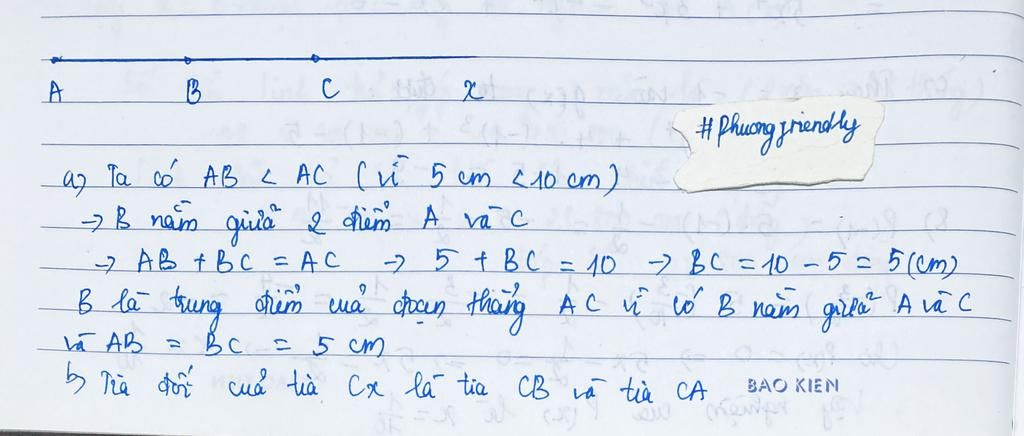 A B C x
#Phuongfriendly
a) Ta có AB < AC (vì 5 cm < 10 cm)
→ B nằm giữa 2 điểm A và C
→ AB + BC = AC → 5 + BC = 10 → BC = 10 - 5 = 5 (cm)
B là trung điểm của đoạn thẳng AC vì có B nằm giữa A và C
và AB = BC = 5 cm
b) Tia đối của tia Cx là tia CB và tia CA
BAO KIEN